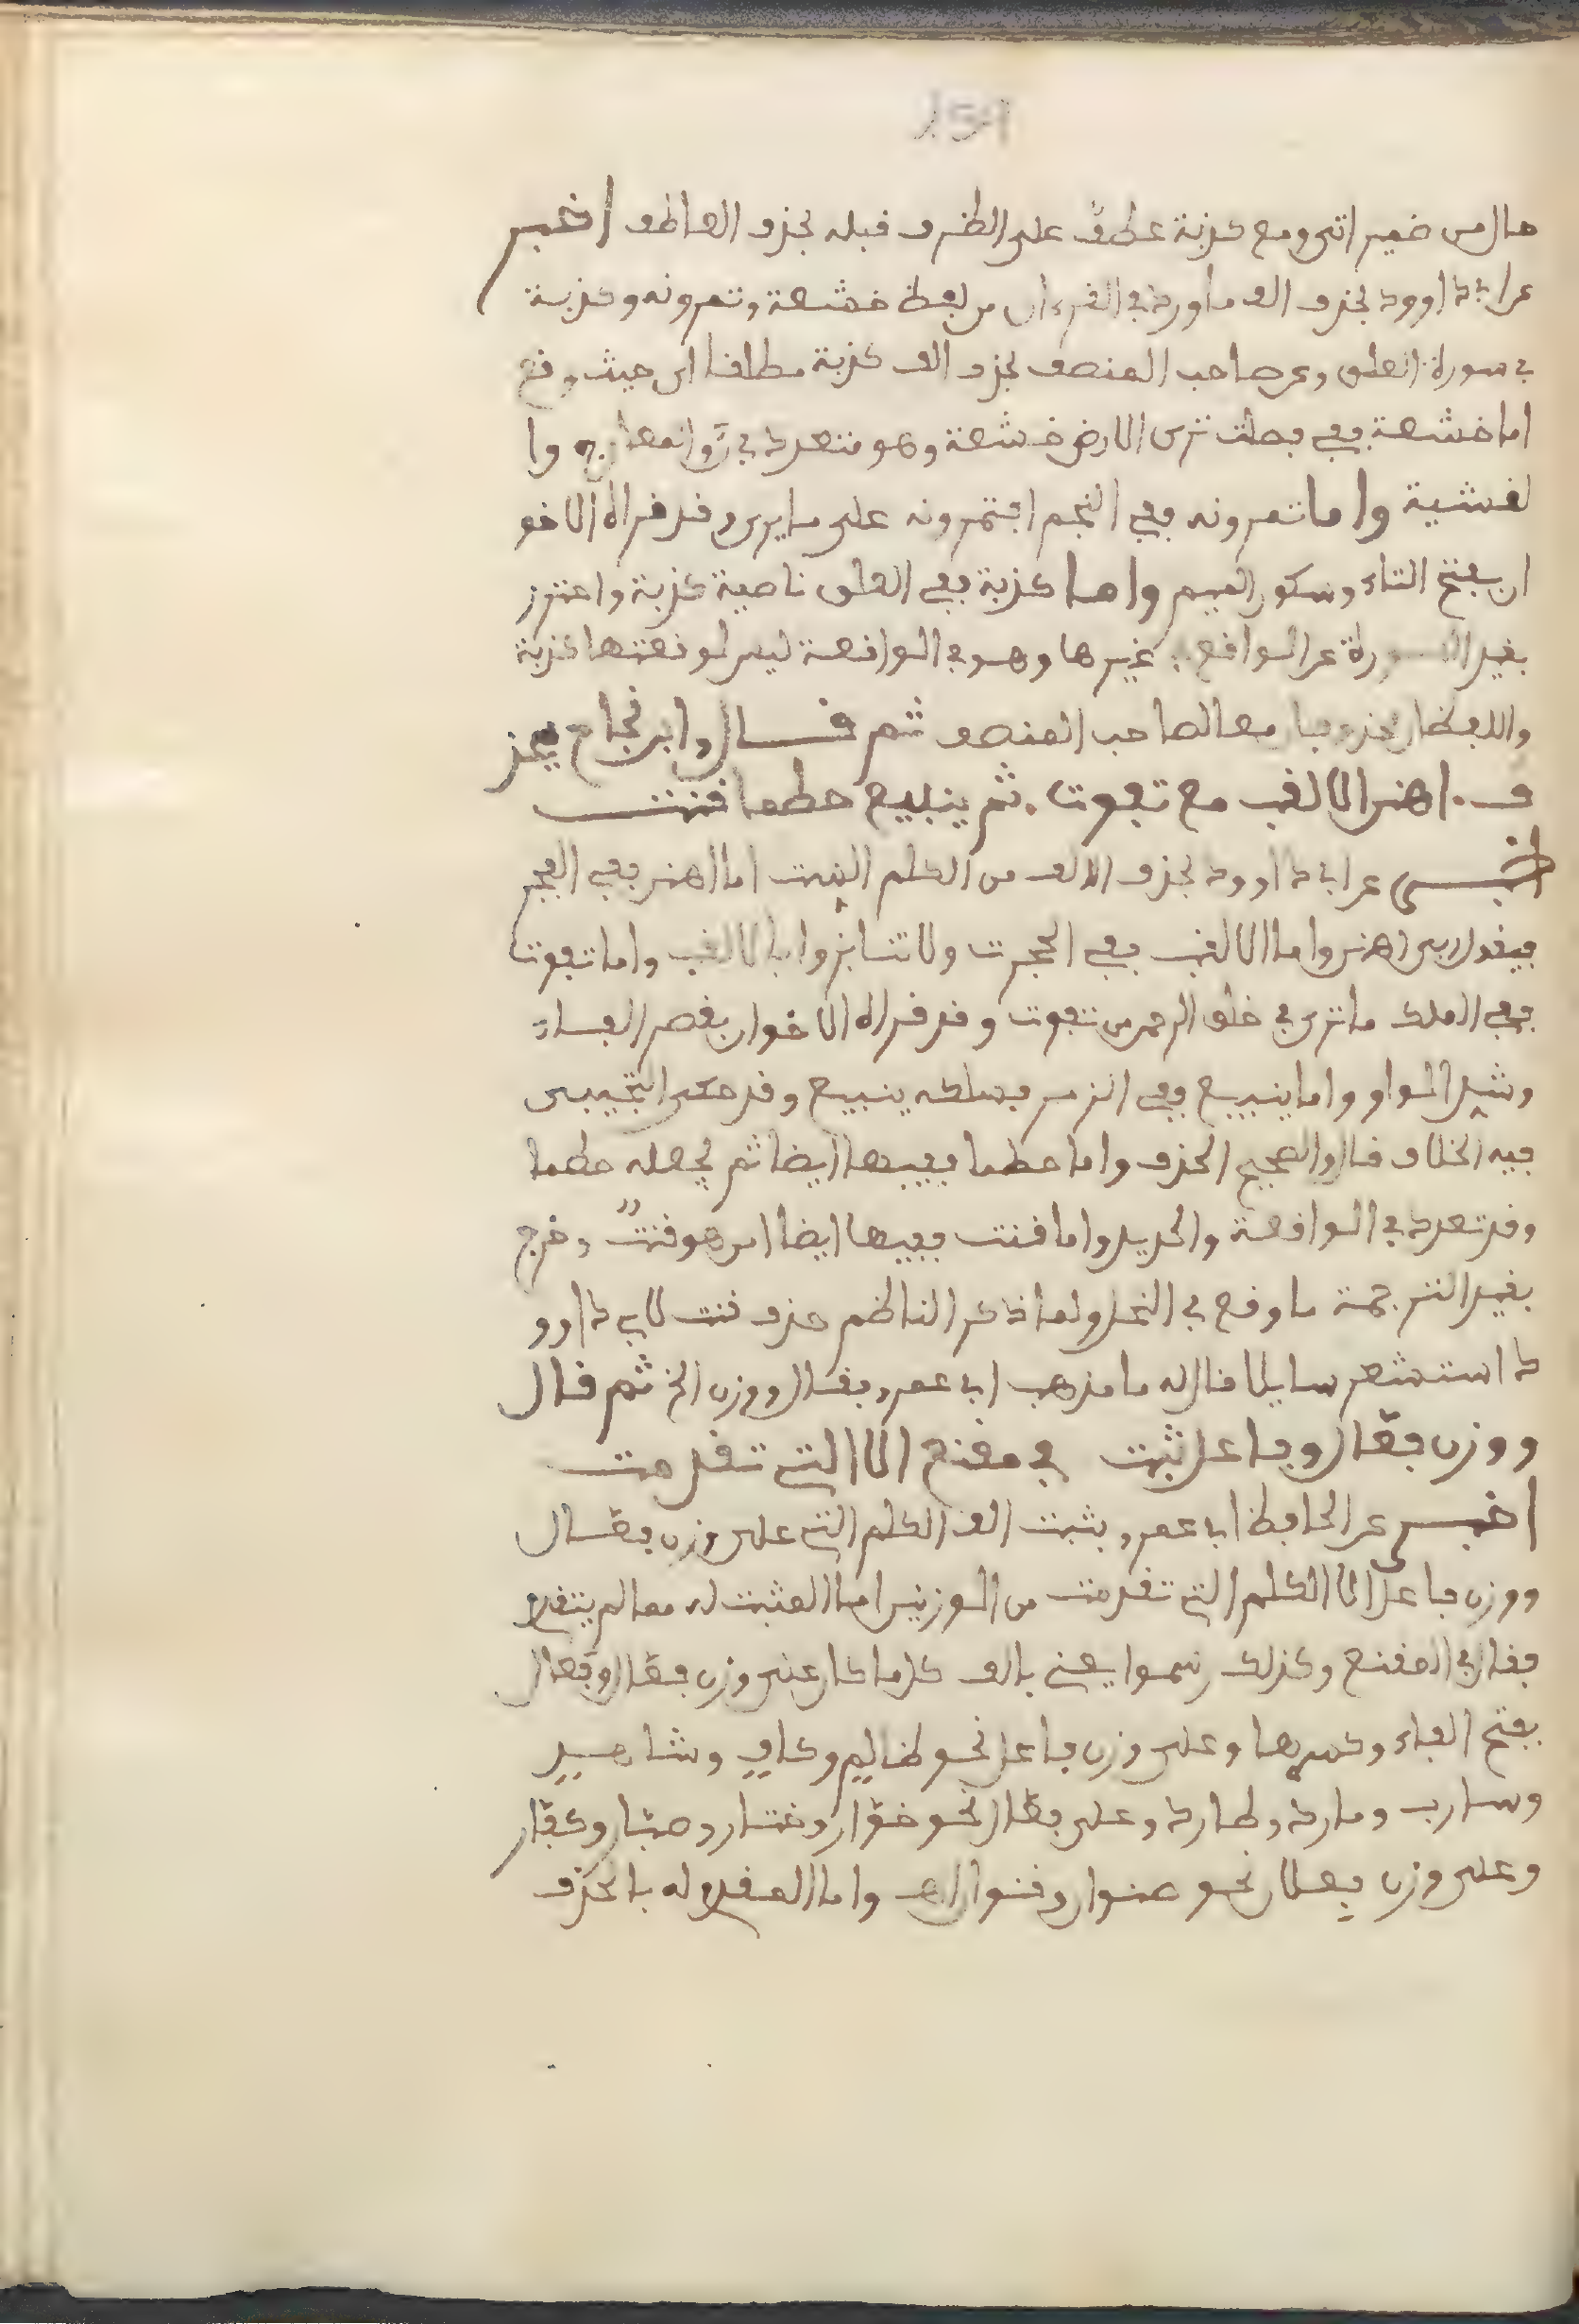 154
حال من ضمير اتى ومع كذبة عطف على الظرف قبله بحذف العاطف اخبر
عن ابي داوود بحذف الف ما ورد في القرءان من لفظ خشعة وتمرونه وكذبة
في سورة العلق وعن صاحب المنصف بحذف الف كذبة مطلقا اي حيث وقع
اما خشعة ففي فصلت ترى الارض خشعة وهو متعدد في ن والمعارج وا
لغشية واما تمرونه ففي النجم افتمرونه على ما يرى وقد قراه الاخو
ان بفتح التاء وسكون الميم واما كذبة ففي العلق ناصية كذبة واحترز
بقيد السورة عن الواقع في غيرها وهو في الواقعة ليس لوقعتها كذبة
واللفظان محذوفان معا لصاحب المنصف ثم قال وابن نجاح يحذ
ف اهنن الالقب مع تفوت ثم ينبيع حطما قنت
اخبر عن ابي داوود بحذف الالف من الكلم الست اما اهنن ففي الفجر
فيقول ربي اهنن واما الالقب ففي الحجرت ولا تنابزوا بالالقب واما تفوت
ففي الملك ما ترى في خلق الرحمن من تفوت وقد قراه الاخوان بقصر الفاء
وشد الواو واما ينبيع ففي الزمر فسلكه ينبيع وقد حكى التجيبي
فيه الخلاف قال والصحيح الحذف واما حطما ففيها ايضا ثم يجعله حطما
وقد تعدد في الواقعة والحديد واما قنت ففيها ايضا امن هو قنت وخرج
بقيد الترجمة ما وقع في النحل ولما ذكر الناظم حذف قنت لابي داوو
د استشعر سايلا قال له ما مذهب ابي عمرو فقال ووزن الخ ثم قال
ووزن فعال وفاعل ثبت في مقنع الا التي تقدمت
اخبر عن الحافظ ابي عمرو بثبت الف الكلم التي على وزن فعال
ووزن فاعل الا الكلم التي تقدمت من الوزنين اما المثبت له مما لم يتقدم
فقال في المقنع وكذلك رسموا يعني بالف كل ما كان على وزن فعال وفعال
بفتح الفاء وكسرها وعلى وزن فاعل نحو ظالم وكاف وشاهد
وسارب ومارد وطارد وعلى فعال نحو خوار وختار وصبار وكفار
وعلى وزن فعلان نحو صنوان وقنوان واما المقدم له بالحذف